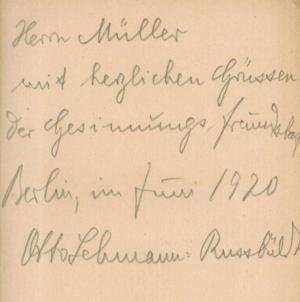 Herrn Müller
mit herzlichen Grüssen
der Gesinnungsfreundschaft
Berlin, im Juni 1920
Otto Lehmann-Russbüldt